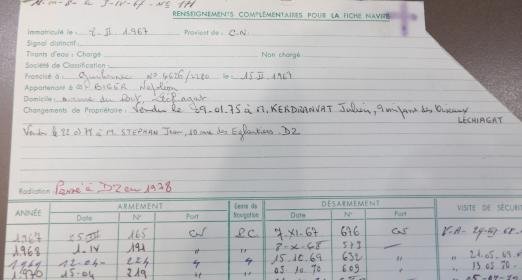 RENSEIGNEMENTS COMPLÉMENTAIRES POUR LA FICHE NAVIRE
Immatriculé le : 7. II 1967 Provient de : C.N.
Signal distinctif :
Tirants d'eau : Chargé Non chargé
Société de Classification :
Francisé à Guilvinec N° 4626/2280 le : 15 II 1967
Appartenant à BIGER Napoléon
Domicile : du Port, Léchiagat
Changements de Propriétaire : Vendu le 29-01.75 à M. KERDRANVAT Julien, 9 impasse des Oiseaux
LÉCHIAGAT
Vendu le 22 01 78 à M. STEPHAN Jean, 10 rue des Eglantiers DZ
Radiation : Passé à DZ en 1978
ANNÉE ARMEMENT Genre de Navigation DÉSARMEMENT VISITE DE SÉCURITÉ
Date N° Port Date N° Port
1967 165 7-XI-67 676
1968 1-IV 191 " 8-X-68 573
1969 12-04 224 " 15.10.69 632 " 21.05.69
1970 15-04 219 " 05.10.70 609 " 13.05.70